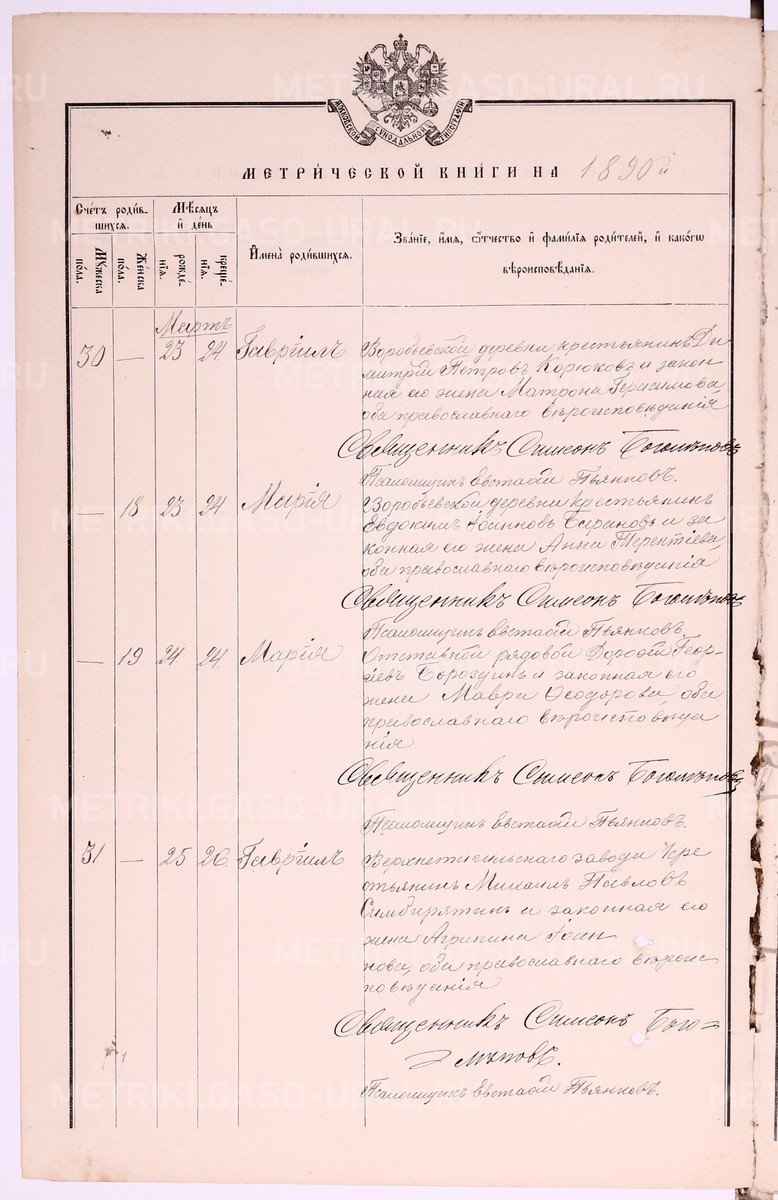 МОСКОВСКОЙ СѴНОДАЛЬНОЙ ТИПОГРАФІИ
МЕТРИ́ЧЕСКОЙ КНИ́ГИ НА 1890й
Сче́тъ роди́в-
шихся.
Мѣ́сяцъ
и҆ де́нь
Мꙋ́жеска
по́ла.
Же́нска
по́ла.
рожде́-
нїѧ.
креще́-
нїѧ.
И҆мена̀ роди́вшихся.
Зва́нїе, и҆́мѧ, ѻ҆́тчество и҆ фами́лїѧ роди́телей, и҆ како́гѡ
вѣроисповѣ́данїѧ.
Мартъ
30 — 23 24 Гавріилъ Воробьевской деревни крестьянинъ Ди
митрій Петровъ Корюковъ и закон
ная его жена Матрона Герасимова,
оба православнаго вѣроисповѣданія
Священникъ Симеонъ Боголѣповъ
Псаломщикъ Евстафій Пьянковъ.
— 18 23 24 Марія Воробьевской деревни крестьянинъ
Евдокимъ Іоанновъ Барановъ и за
конная его жена Анна Терентіева,
оба православнаго вѣроисповѣданія
Священникъ Симеонъ Боголѣповъ
Псаломщикъ Евстафій Пьянковъ.
— 19 24 24 Марія Отставной рядовой Дорофей Геор
гіевъ Бороздинъ и законная его
жена Мавра Ѳеодорова, оба
православнаго вѣроисповѣда
нія
Священникъ Симеонъ Боголѣповъ
Псаломщикъ Евстафій Пьянковъ.
31 — 25 26 Гавріилъ Верхнетагильскаго завода кре
стьянинъ Михаилъ Павловъ
Симбирятинъ и законная его
жена Агрипина Іоан
нова, оба православнаго вѣроис
повѣданія
Священникъ Симеонъ Бого
лѣповъ.
Псаломщикъ Евстафій Пьянковъ.
METRIKI.GASO-URAL.RU